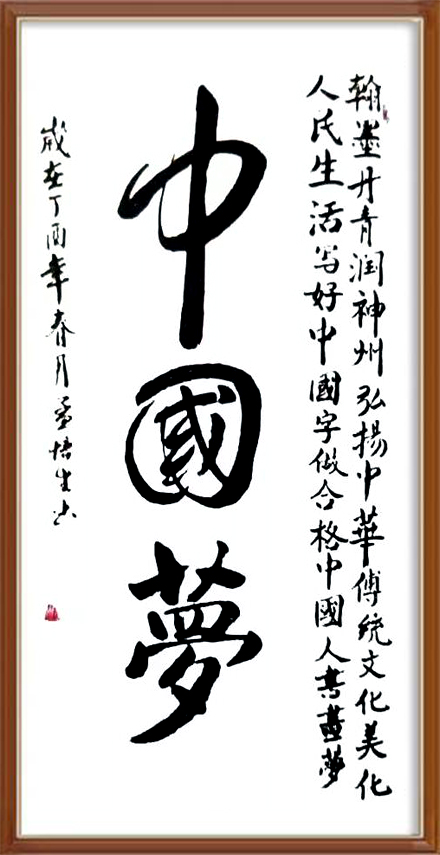 翰墨丹青润神州弘揚中華傅统文化美化
人民生活写好中國字做合格中國人書畫夢
中國夢
歲在丁酉年春月孟悟生书